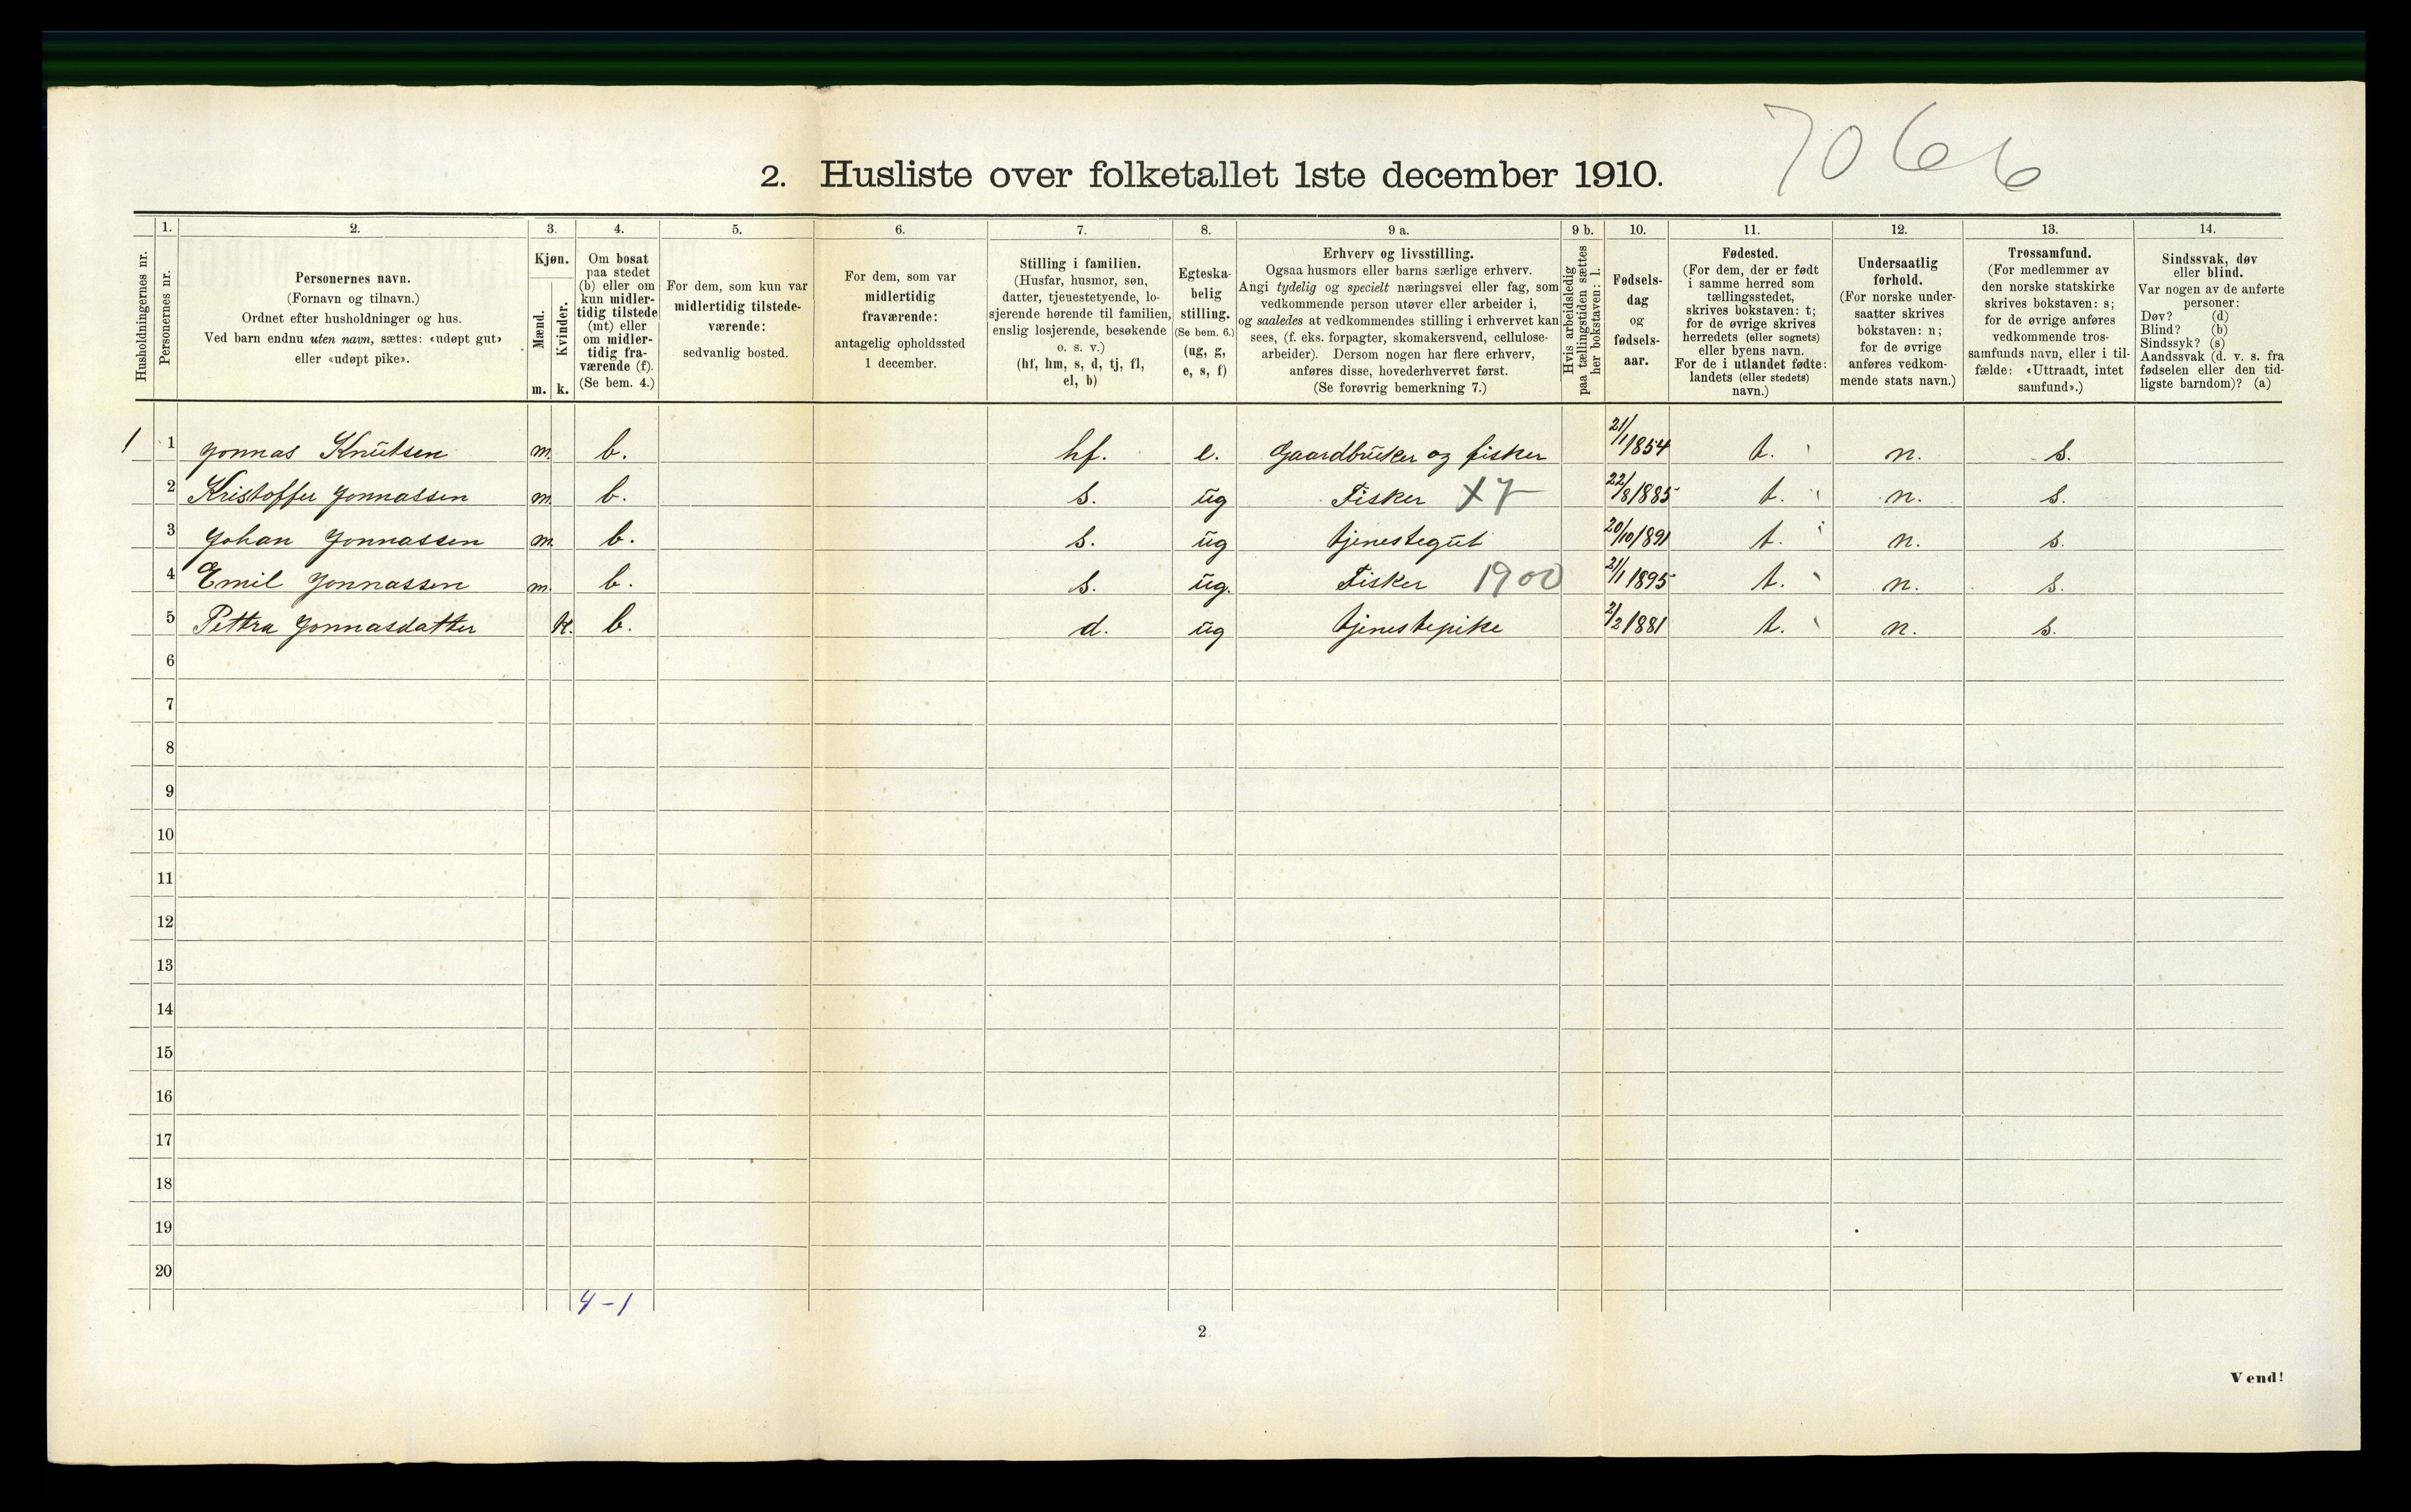 7066
2. Husliste over folketallet 1ste december 1910.
Husholdningernes nr.
1.
Personernes nr.
2.
Personernes navn.
(Fornavn og tilnavn.)
Ordnet efter husholdninger og hus.
Ved barn endnu uten navn, sættes: «udøpt gut»
eller «udøpt pike».
3.
Kjøn.
Mænd.
m.
Kvinder.
k.
4.
Om bosat
paa stedet
(b) eller om
kun midler-
tidig tilstede
(mt) eller
om midler-
tidig fra-
værende (f).
(Se bem. 4.)
5.
For dem, som kun var
midlertidig tilstede-
værende:
sedvanlig bosted.
6.
For dem, som var
midlertidig
fraværende:
antagelig opholdssted
1 december.
7.
Stilling i familien.
(Husfar, husmor, søn,
datter, tjenestetyende, lo-
sjerende hørende til familien,
enslig losjerende, besøkende
o. s. v.)
(hf, hm, s, d, tj, fl,
el, b)
8.
Egteska-
belig
stilling.
(Se bem. 6.)
(ug, g,
e, s, f)
9 a.
Erhverv og livsstilling.
Ogsaa husmors eller barns særlige erhverv.
Angi tydelig og specielt næringsvei eller fag, som
vedkommende person utøver eller arbeider i,
og saaledes at vedkommendes stilling i erhvervet kan
sees, (f. eks. forpagter, skomakersvend, cellulose-
arbeider). Dersom nogen har flere erhverv,
anføres disse, hovederhvervet først.
(Se forøvrig bemerkning 7.)
9 b.
Hvis arbeidsledig
paa tællingstiden sættes
her bokstaven: l.
10.
Fødsels-
dag
og
fødsels-
aar.
11.
Fødested.
(For dem, der er født
i samme herred som
tællingsstedet,
skrives bokstaven: t;
for de øvrige skrives
herredets (eller sognets)
eller byens navn.
For de i utlandet fødte:
landets (eller stedets)
navn.)
12.
Undersaatlig
forhold.
(For norske under-
saatter skrives
bokstaven: n;
for de øvrige
anføres vedkom-
mende stats navn.)
13.
Trossamfund.
(For medlemmer av
den norske statskirke
skrives bokstaven: s;
for de øvrige anføres
vedkommende tros-
samfunds navn, eller i til-
fælde: «Uttraadt, intet
samfund».)
14.
Sindssvak, døv
eller blind.
Var nogen av de anførte
personer:
Døv? (d)
Blind? (b)
Sindssyk? (s)
Aandssvak (d. v. s. fra
fødselen eller den tid-
ligste barndom)? (a)
1 1 Jonnas Knutsen m. b. hf. e. Gaardbruker og fisker 21/1 1854 t. n. s.
2 Kristoffer Jonnassen m. b. s. ug Fisker X7 22/8 1885 t. n. s.
3 Johan Jonnassen m. b. s. ug tjenestegut 20/10 1891 t. n. s.
4 Emil Jonnassen m. b. s. ug. Fisker 1900 21/1 1895 t. n. s.
5 Pettra Jonnasdatter k. b. d. ug tjenestepike 2/2 1881 t. n. s.
6
7
8
9
10
11
12
13
14
15
16
17
18
19
20
4-1
2
Vend!